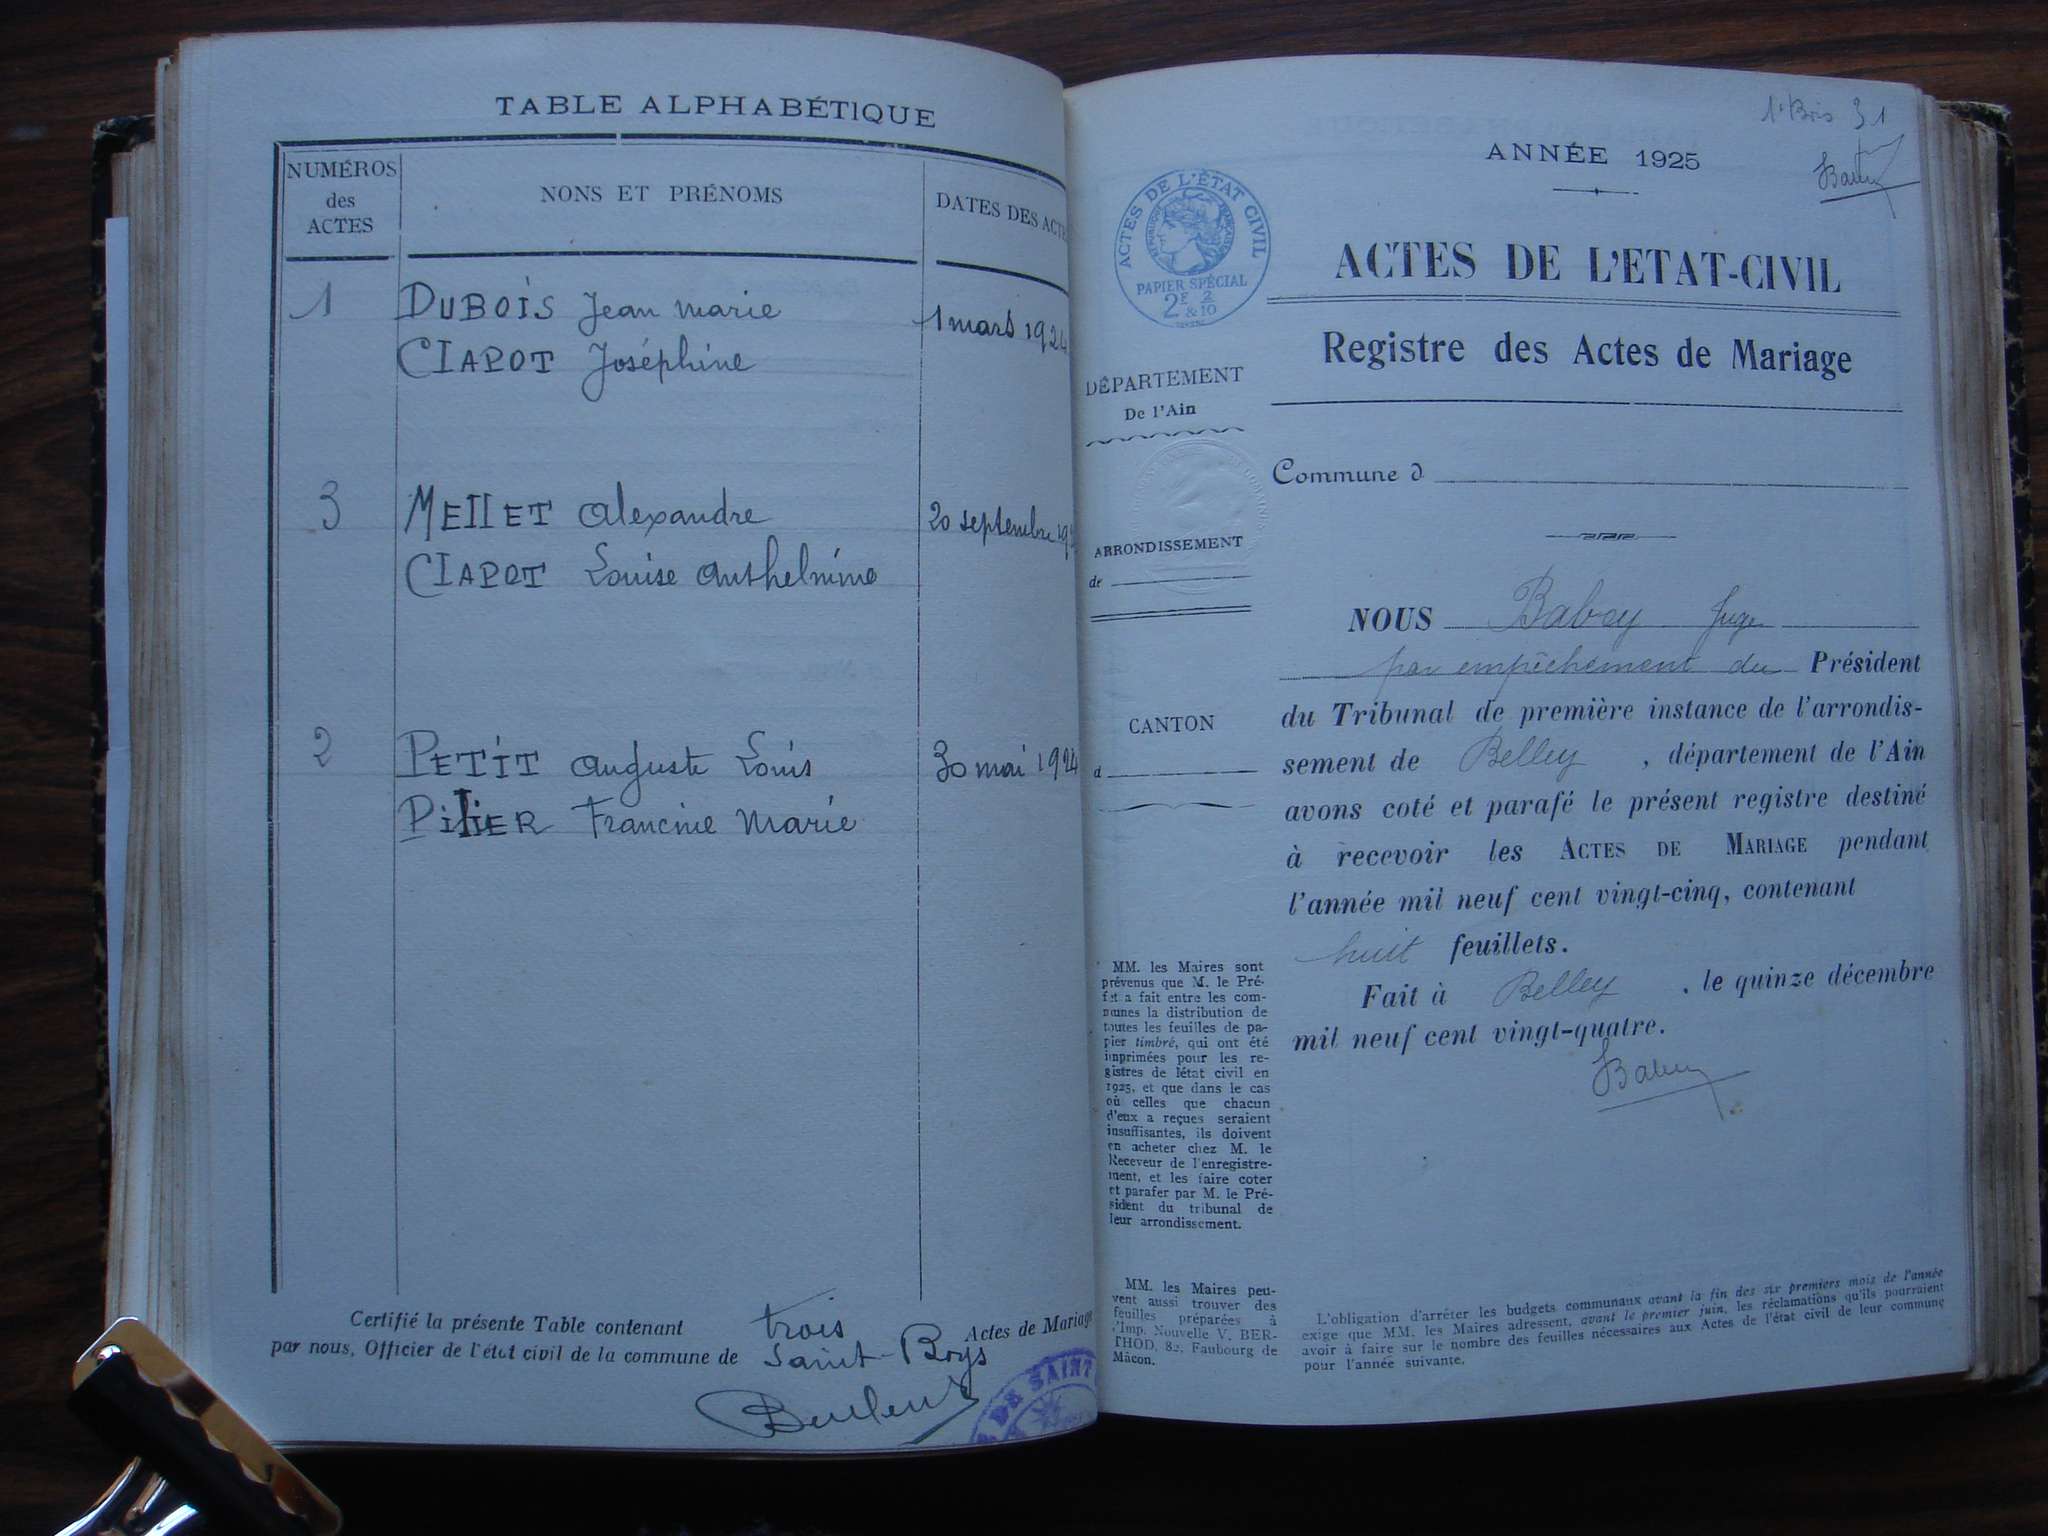 TABLE ALPHABÉTIQUE
NUMÉROS
des
ACTES
NONS ET PRÉNOMS
DATES DES ACTE
1
DUBOIS Jean Marie
CLAPOT Joséphine
1 mars 1924
3
MELLET Alexandre
CLAPOT Louise Anthelmine
20 septembre 19
2
PETIT Auguste Louis
PILLIER Francine Marie
30 mai 1924
Certifié la présente Table contenant trois Actes de Mariage
par nous, Officier de l'état civil de la commune de Saint-Boys
DE SAINT
1r Bois 31
ANNÉE 1925
ACTES DE L'ÉTAT CIVIL
RÉPUBLIQUE FRANÇAISE
PAPIER SPÉCIAL
2F 2
& 10
ACTES DE L'ETAT-CIVIL
Registre des Actes de Mariage
DÉPARTEMENT
De l'Ain
Commune d
ARRONDISSEMENT
de
CANTON
d
NOUS Babey Juge
par empêchement du Président
du Tribunal de première instance de l'arrondis-
sement de Belley, département de l'Ain
avons coté et parafé le présent registre destiné
à recevoir les ACTES DE MARIAGE pendant
l'année mil neuf cent vingt-cinq, contenant
huit feuillets.
Fait à Belley, le quinze décembre
mil neuf cent vingt-quatre.
Babey
MM. les Maires sont
prévenus que M. le Pré-
fet a fait entre les com-
munes la distribution de
toutes les feuilles de pa-
pier timbré, qui ont été
imprimées pour les re-
gistres de létat civil en
1925, et que dans le cas
où celles que chacun
d'eux a reçues seraient
insuffisantes, ils doivent
en acheter chez M. le
Receveur de l'enregistre-
ment, et les faire coter
et parafer par M. le Pré-
sident du tribunal de
leur arrondissement.
MM. les Maires peu-
vent aussi trouver des
feuilles préparées à
l'Imp. Nouvelle V. BER-
THOD, 82, Faubourg de
Mâcon.
L'obligation d'arrêter les budgets communaux avant la fin des six premiers mois de l'année
exige que MM. les Maires adressent, avant le premier juin, les réclamations qu'ils pourraient
avoir à faire sur le nombre des feuilles nécessaires aux Actes de l'état civil de leur commune
pour l'année suivante.